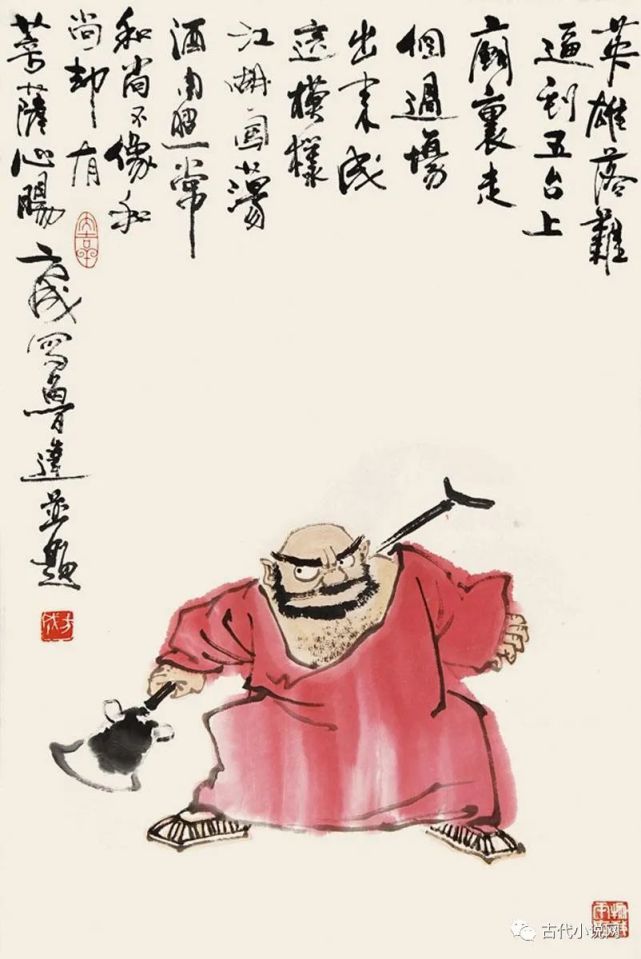 英雄落難
逼到五台上
廟裏走
個過場
出來成
這模樣
江湖闖蕩
酒肉照常
和尚不像和
尚却有
菩薩心腸
方成寫魯達並題
方成
古代小说网